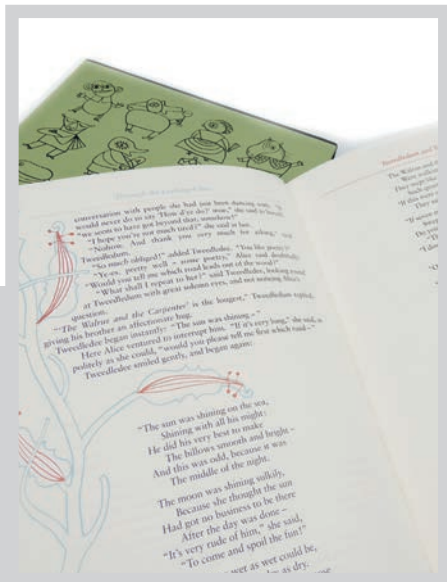 Through the Looking-Glass
conversation with people she had just been dancing with. "It
would never do to say 'How d'ye do?' now," she said to herself:
"we seem to have got beyond that, somehow!"
"I hope you're not much tired?" she said at last.
"Nohow. And thank you very much for asking," said
Tweedledum.
"So much obliged!" added Tweedledee. "You like poetry?"
"Ye-es, pretty well – some poetry," Alice said doubtfully.
"Would you tell me which road leads out of the wood?"
"What shall I repeat to her?" said Tweedledee, looking round
at Tweedledum with great solemn eyes, and not noticing Alice's
question.
"'The Walrus and the Carpenter' is the longest," Tweedledum replied,
giving his brother an affectionate hug.
Tweedledee began instantly: "The sun was shining –"
Here Alice ventured to interrupt him. "If it's very long," she said, as
politely as she could, "would you please tell me first which road –"
Tweedledee smiled gently, and began again:
"The sun was shining on the sea,
Shining with all his might:
He did his very best to make
The billows smooth and bright –
And this was odd, because it was
The middle of the night.
The moon was shining sulkily,
Because she thought the sun
Had got no business to be there
After the day was done –
"It's very rude of him," she said,
"To come and spoil the fun!"
wet as wet could be,
as dry.
Tweedledum and
The Walrus and